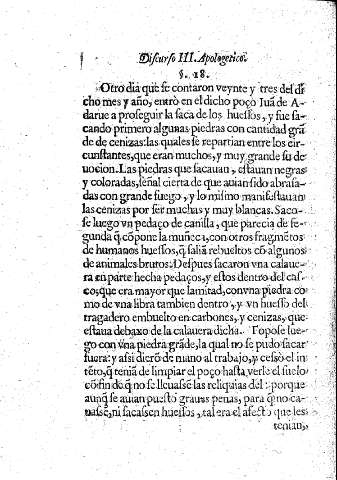 Discurso III. Apologetico.
§. 18.
Otro dia que se contaron veynte y tres del di-
cho mes y año, entrò en el dicho poço Iuã de A-
darue a proseguir la saca de los huessos, y fue sa-
cando primero algunas piedras con cantidad grã
de de cenizas: las quales se repartian entre los cir-
cunstantes, que eran muchos, y muy grande su de-
uocion. Las piedras que sacauan, estauan negras
y coloradas, señal cierta de que auian sido abrasa-
das con grande fuego, y lo mismo manifestauan
las cenizas por ser muchas y muy blancas. Saco-
se luego vn pedaço de canilla, que parecia de se-
gunda q̃ cõpone la muñeca, con otros fragmẽtos
de humanos huessos, q̃ salia rebueltos cõ algunos
de animales brutos: Despues sacaron vna calaue-
ra en parte hecha pedaços, y estos dentro del cas-
co, que era mayor que la mitad, con vna piedra co
mo de vna libra tambien dentro, y vn huesso del
tragadero embuelto en carbones, y cenizas, que
estaua debaxo de la calauera dicha. Topose lue-
go con vna piedra grãde, la qual no se pudo sacar
fuera: y assi dierõ de mano al trabajo, y cessò el in
tẽto, q̃ teniã de limpiar el poço hasta verle el suelo
cõ fin de q̃ no se lleuassẽ las reliquias del: porque
aunq̃ se auian puesto graues penas, para q̃ no ca-
uassẽ, ni sacassen huessos, tal era el afecto que les
tenian,